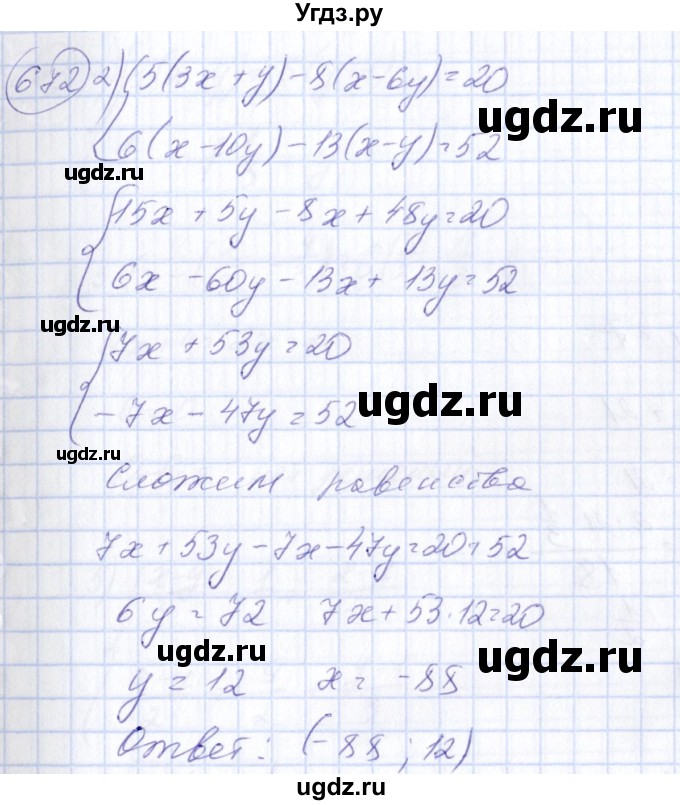 Угдз.ру
672 2) { 5(3x + y) - 8(x - 6y) = 20
6(x - 10y) - 13(x - y) = 52
ugdz.ru
ugdz.ru
{ 15x + 5y - 8x + 48y = 20
6x - 60y - 13x + 13y = 52
ugdz.ru
{ 7x + 53y = 20
- 7x - 47y = 52
ugdz.ru
ugdz.ru
Сложим равенства
7x + 53y - 7x - 47y = 20 + 52
6y = 72 7x + 53·12 = 20
ugdz.ru
ugdz.ru
y = 12 x = -88
Ответ: (-88 ; 12)
ugdz.ru